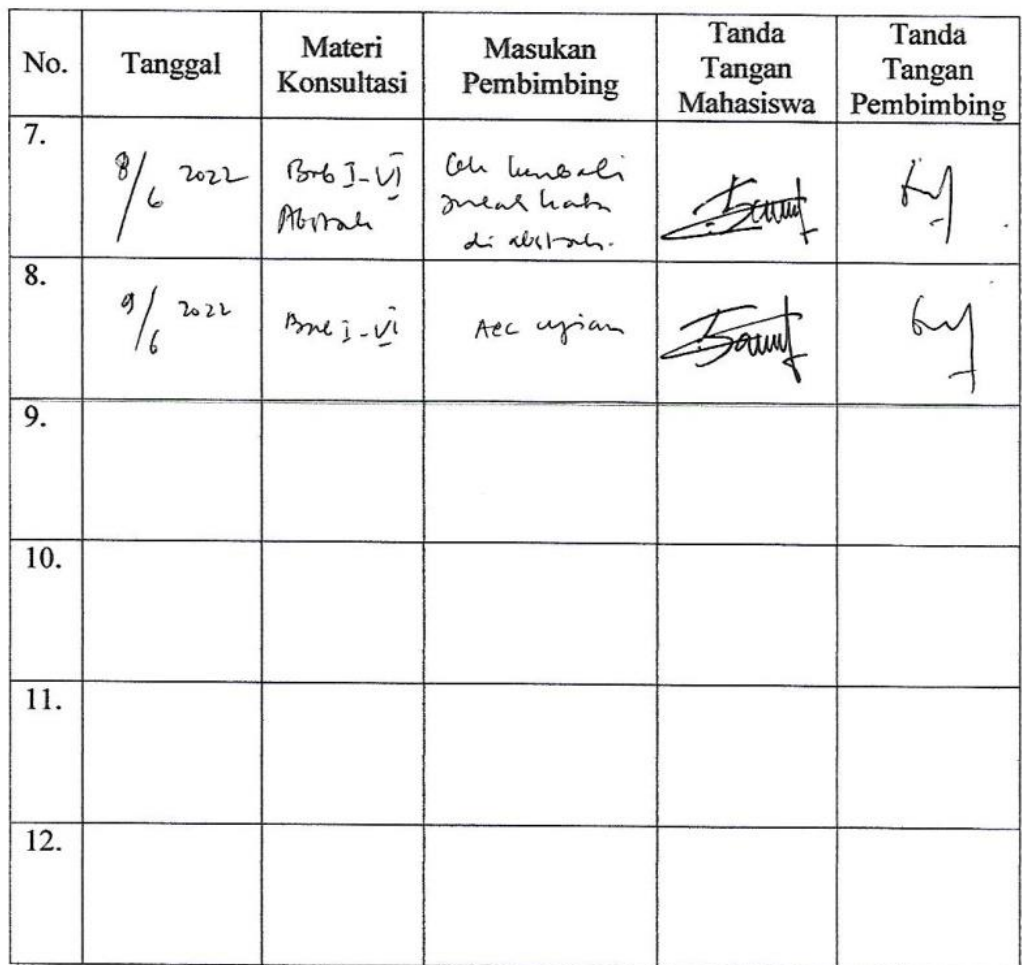 No. Tanggal Materi Konsultasi Masukan Pembimbing Tanda Tangan Mahasiswa Tanda Tangan Pembimbing
7. 8/6 2022 Bab I-VI Abstrak Cek kembali jumlah kata di abstrak.
8. 9/6 2022 Bab I-VI Acc ujian
9.
10.
11.
12.